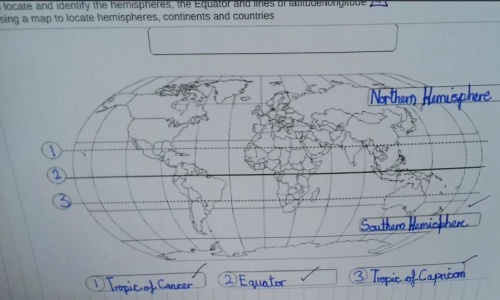 locate and identify the hemispheres, the Equator and lines of latitude/longitude
sing a map to locate hemispheres, continents and countries
Northern Hemisphere
1
2
3
Southern Hemisphere
1 Tropic of Cancer
2 Equator
3 Tropic of Capricorn